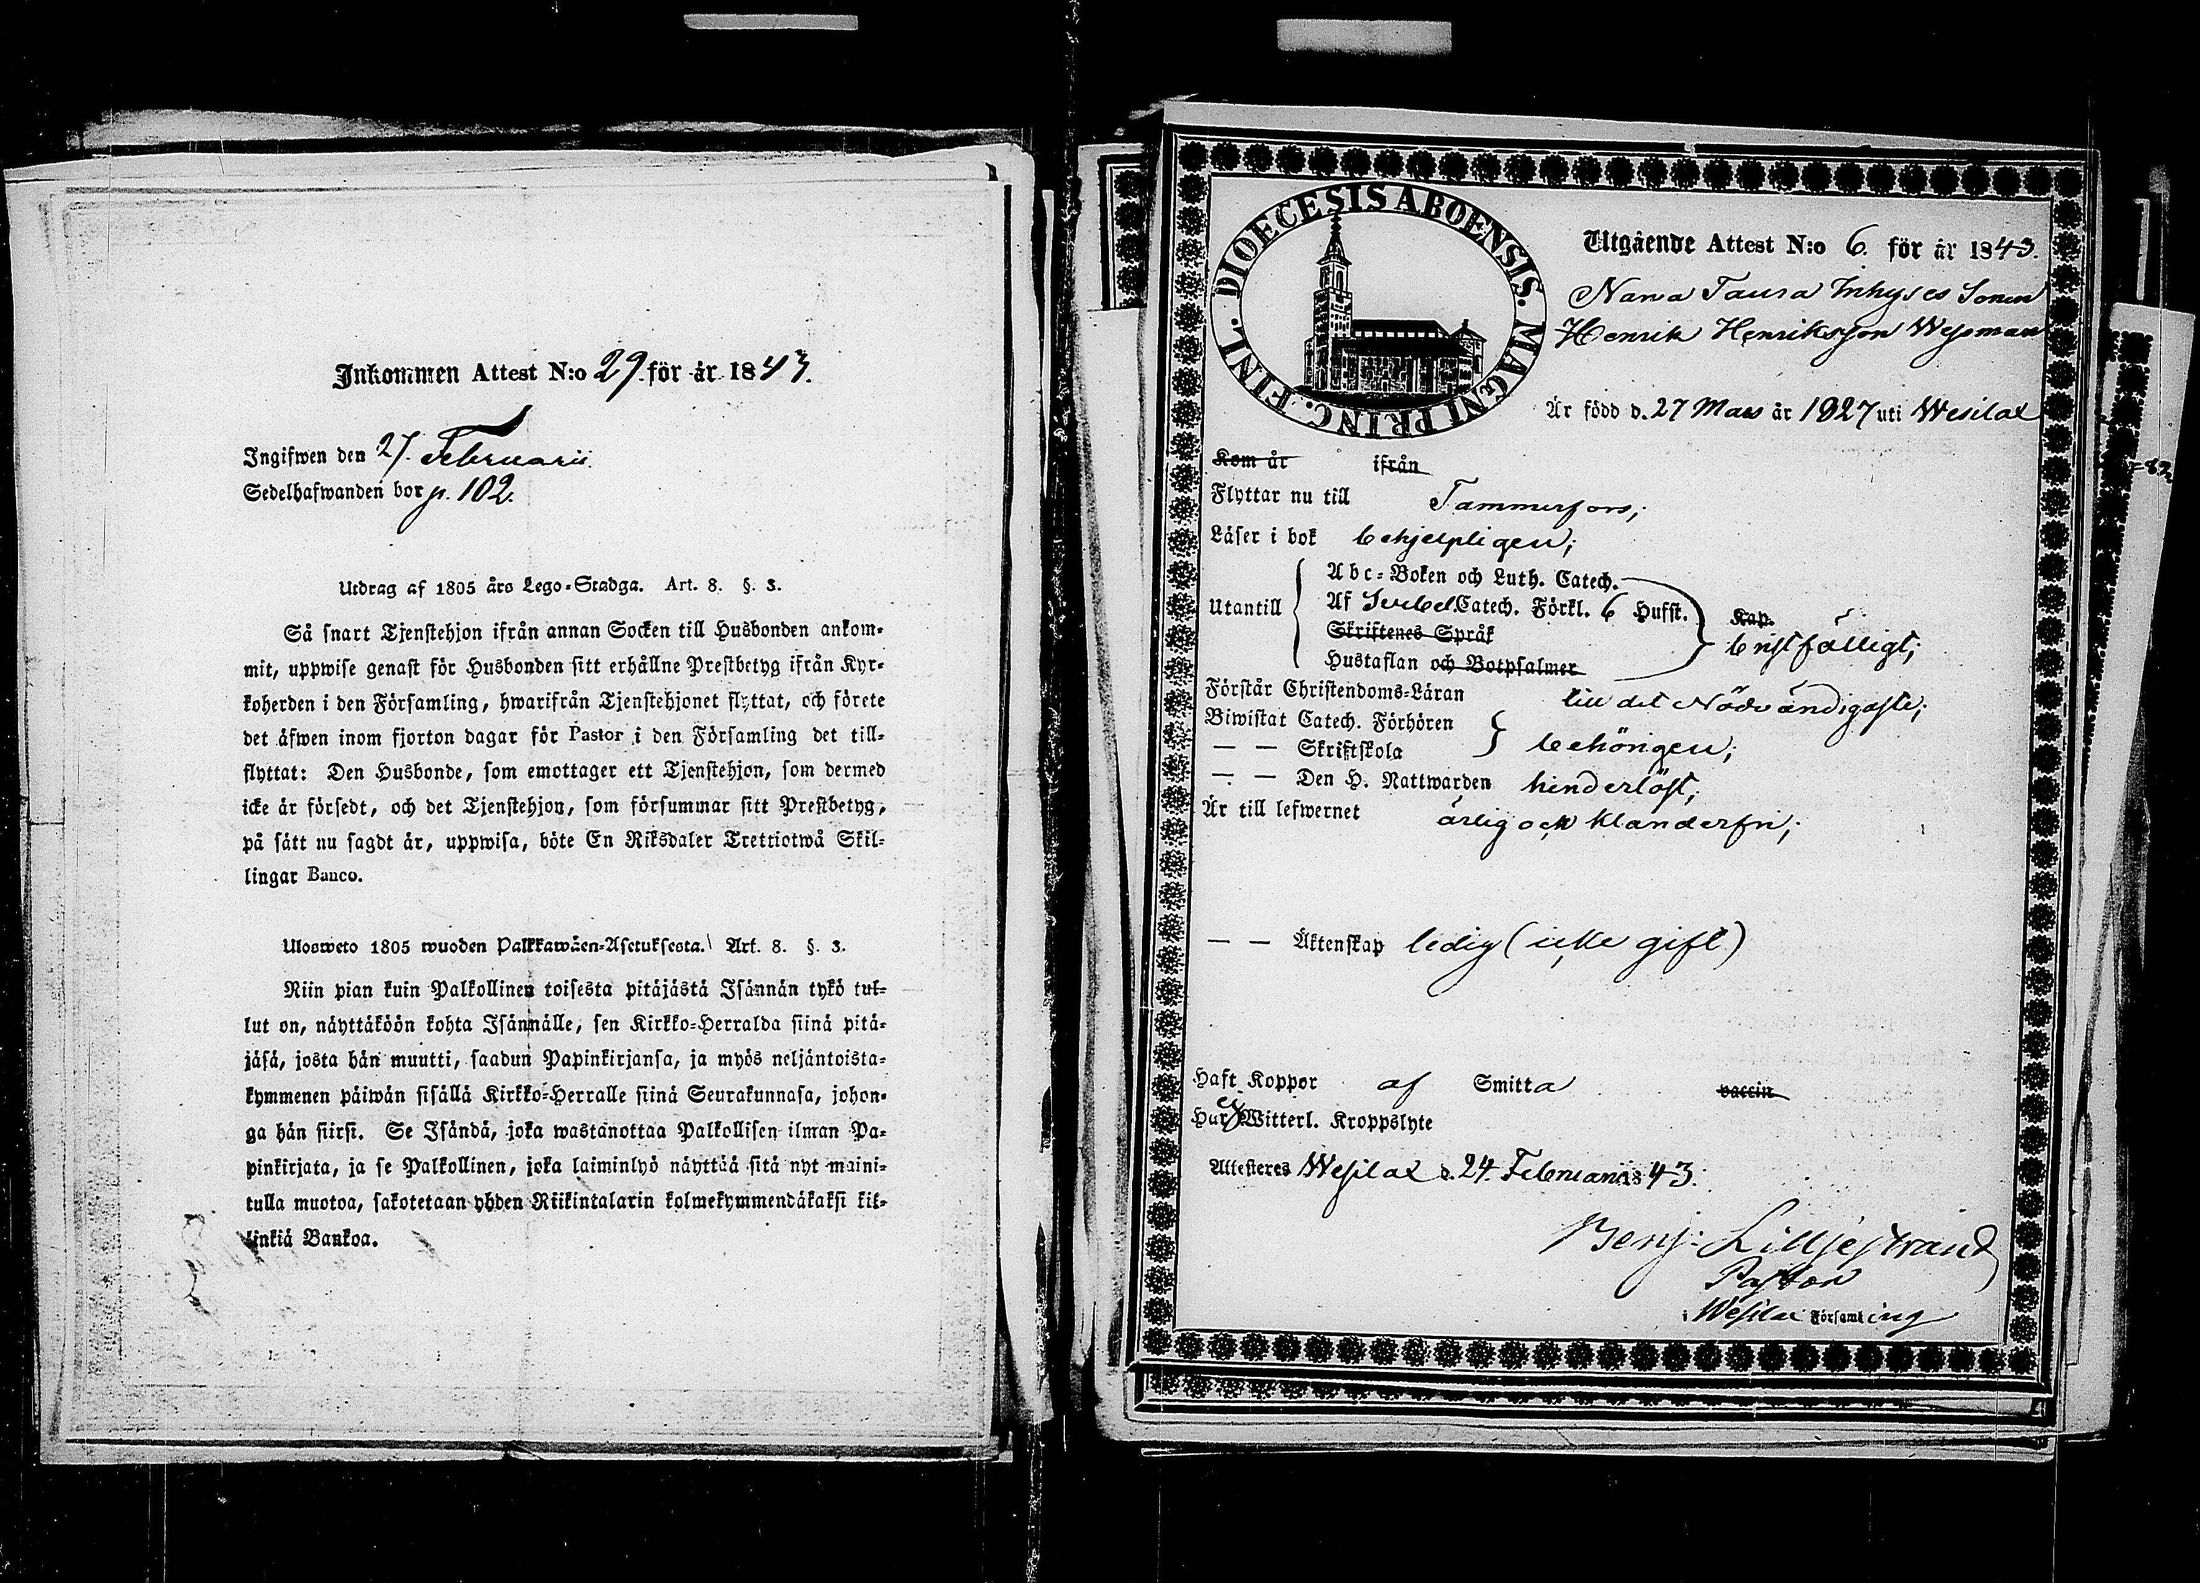 Inkommen Attest N:o 29. för år 1843.
Ingifwen den 27. Februarii.
Sedelhafwanden bor p. 102.
Utdrag af 1805 års Lego-Stadga. Art. 8. §. 3.
Så snart Tjenstehjon ifrån annan Socken till Husbonden ankom-
mit, uppwise genast för Husbonden sitt erhållne Prestbetyg ifrån Kyr-
koherden i den Församling, hwarifrån Tjenstehjonet flyttat, och förete
det äfwen inom fjorton dagar för Pastor i den Församling det till-
flyttat: Den Husbonde, som emottager ett Tjenstehjon, som dermed
icke är försedt, och det Tjenstehjon, som försummar sitt Prestbetyg,
på sätt nu sagdt är, uppwisa, böte En Riksdaler Trettiotwå Skil-
lingar Banco.
Ulosweto 1805 wuoden Palkkawäen-Asetuksesta. Art. 8. §. 3.
Niin pian kuin Palkollinen toisesta pitäjästä Isännän tykö tul-
lut on, näyttäköön kohta Isännälle, sen Kirkko-Herralda siinä pitä-
jäsä, josta hän muutti, saadun Papinkirjansa, ja myös neljäntoista-
kymmenen päiwän sisällä Kirkko-Herralle siinä Seurakunnasa, johon-
ga hän siirsi. Se Isändä, joka wastanottaa Palkollisen ilman Pa-
pinkirjata, ja se Palkollinen, joka laiminlyö näyttää sitä nyt maini-
tulla muotoa, sakotetaan yhden Riikintalarin kolmekymmendäkaksi kil-
linkiä Bankoa.
DIOECESIS ABOENSIS. MAGNI PRINC. FINL.
Utgående Attest N:o 6. för år 1843.
Narva Taura Inhyses Sonen
Henrik Henriksson Wesman
Är född d. 27 Mars år 1827 uti Wesilax
Kom år ifrån
Flyttar nu till Tammerfors;
Läser i bok behjelpligen;
Abc-Boken och Luth. Catech.
Utantill Af Svebel. Catech. Förkl. 6 Hufst. Kap.
Skriftenes Språk bristfälligt;
Hustaflan och Botpsalmer
Förstår Christendoms-Läran till det Nödvändigaste;
Biwistat Catech. Förhören
— — Skriftskola behörigen;
— — Den H. Nattwarden hinderlöst;
Är till lefwernet ärlig och klanderfri;
— — Äktenskap ledig (icke gift)
Haft Koppor af Smitta vaccin
Har ej Witterl. Kroppslyte
Attesteres Wesilax d. 24. Februarii 1843.
Benj: Lilljestrand
Pastor
i Wesilax Församling